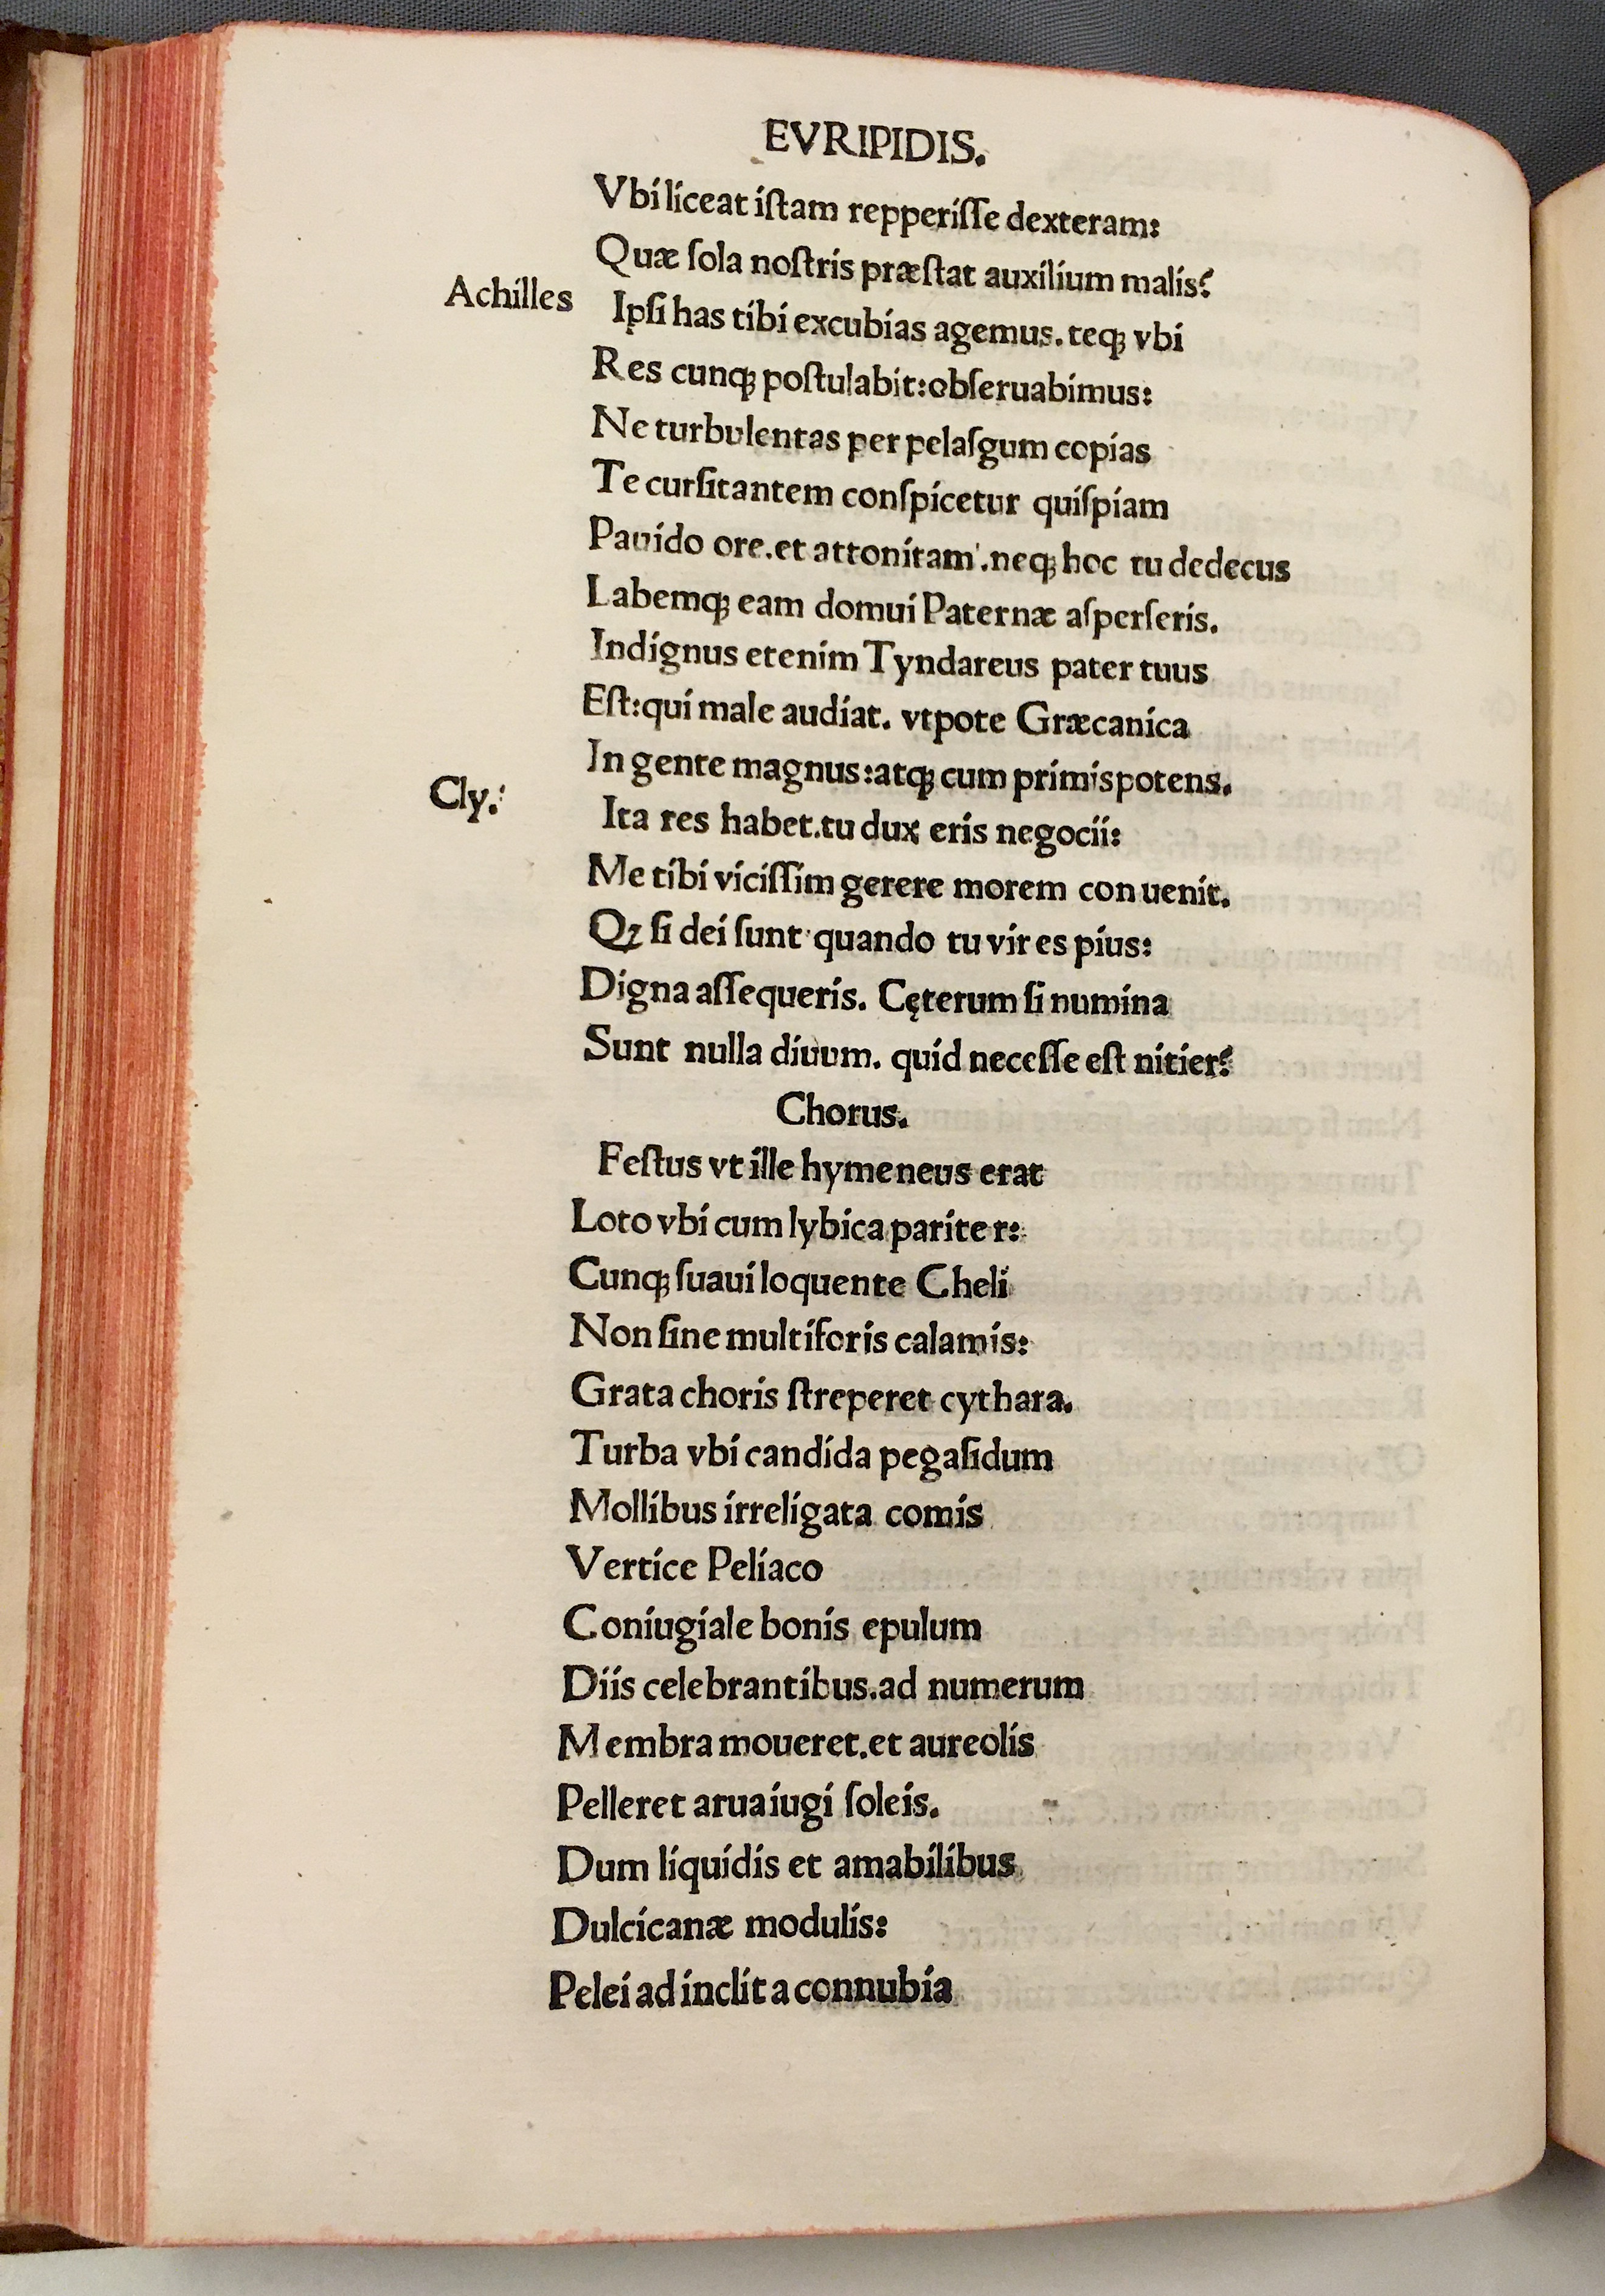 EVRIPIDIS.
Vbi liceat iſtam repperiſſe dexteram:
Quæ ſola noſtris præſtat auxilium malis?
Achilles Ipſi has tibi excubias agemus. teqꝫ vbi
Res cunqꝫ poſtulabit: obſeruabimus:
Ne turbulentas per pelaſgum copias
Te curſitantem conſpicetur quiſpiam
Pauido ore. et attonitam. neqꝫ hoc tu dedecus
Labemqꝫ eam domui Paternæ aſperſeris.
Indignus etenim Tyndareus pater tuus
Eſt: qui male audiat. vtpote Græcanica
In gente magnus: atqꝫ cum primis potens.
Cly. Ita res habet. tu dux eris negocii:
Me tibi viciſſim gerere morem conuenit.
Qꝫ ſi dei ſunt quando tu vir es pius:
Digna aſſequeris. Cęterum ſi numina
Sunt nulla diuum. quid neceſſe eſt nitier?
Chorus.
Feſtus vt ille hymeneus erat
Loto vbi cum lybica pariter:
Cunqꝫ ſuauiloquente Cheli
Non ſine multiforis calamis:
Grata choris ſtreperet cythara.
Turba vbi candida pegaſidum
Mollibus irreligata comis
Vertice Peliaco
Coniugiale bonis epulum
Diis celebrantibus. ad numerum
Membra moueret. et aureolis
Pelleret arua iugi ſoleis.
Dum liquidis et amabilibus
Dulcicanæ modulis:
Pelei ad inclita connubia